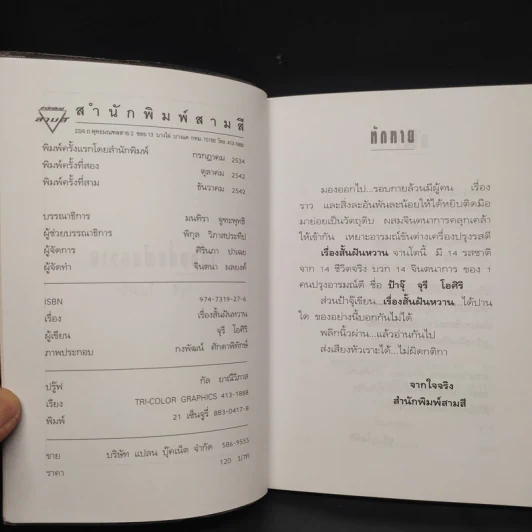 สำนักพิมพ์
สามสี
สำนักพิมพ์สามสี
20/4 ถ.พุทธมณฑลสาย 2 ซอย 13 บางไผ่ บางแค กทม. 10160 โทร. 413-1888
พิมพ์ครั้งแรกโดยสำนักพิมพ์ กรกฎาคม 2534
พิมพ์ครั้งที่สอง ตุลาคม 2542
พิมพ์ครั้งที่สาม ธันวาคม 2542
บรรณาธิการ มนทิรา จูฑะพุทธิ
ผู้ช่วยบรรณาธิการ พิกุล วิภาสประทีป
ผู้จัดการ ศิรินภา ปาเฉย
ผู้จัดทำ จินตนา ผลยงค์
ISBN 974-7319-27-6
เรื่อง เรื่องสั้นฝันหวาน
ผู้เขียน จุรี โอศิริ
ภาพประกอบ กงพัฒน์ ศักดาพิทักษ์
ปรู๊ฟ กัล ยาณีวิภาส
เรียง TRI-COLOR GRAPHICS 413-1888
พิมพ์ 21 เซ็นจูรี่ 883-0417-8
ขาย บริษัท แปลน บุ๊คเน็ต จำกัด 586-9555
ราคา 120 บาท
ทักทาย
มองออกไป...รอบกายล้วนมีผู้คน เรื่อง
ราว และสิ่งละอันพันละน้อยให้ได้หยิบติดมือ
มาย่อยเป็นวัตถุดิบ ผสมจินตนาการคลุกเคล้า
ให้เข้ากัน เหยาะอารมณ์ขันต่างเครื่องปรุงรสดี
เรื่องสั้นฝันหวาน จานโตนี้ มี 14 รสชาติ
จาก 14 ชีวิตจริง บวก 14 จินตนาการ ของ 1
คนปรุงอารมณ์ดี ชื่อ ป้าจุ๊ จุรี โอศิริ
ส่วนป้าจุ๊เขียน...เรื่องสั้นฝันหวาน...ได้ปาน
ใด ของอย่างนี้บอกกันไม่ได้
พลิกนิ้วผ่าน...แล้วอ่านกันไป
ส่งเสียงหัวเราะได้...ไม่ผิดกติกา
จากใจจริง
สำนักพิมพ์สามสี